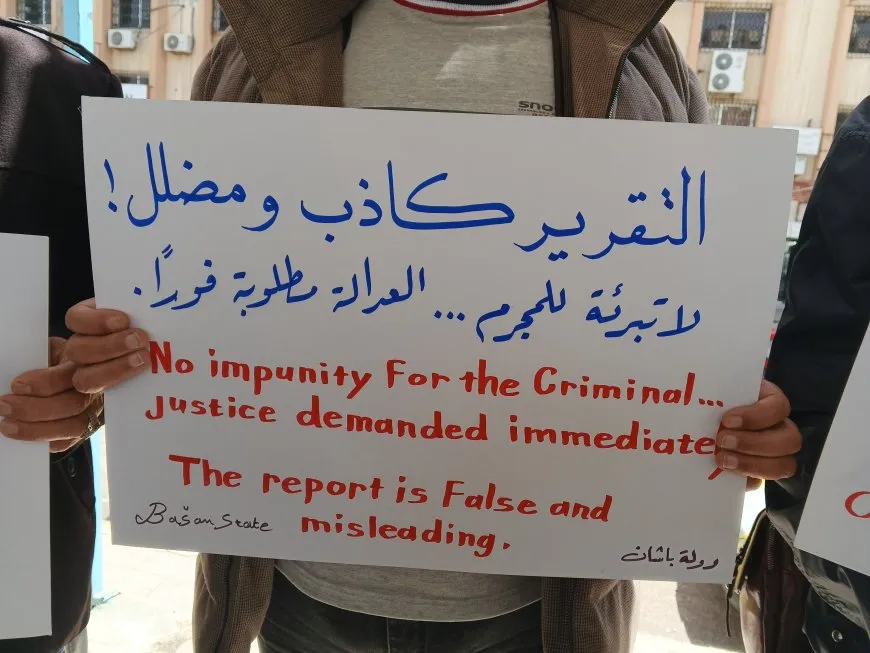 sno
التقرير كاذب ومضلل!
لا تبرئة للمجرم... العدالة مطلوبة فورًا.
No impunity For the Criminal...
Justice demanded immediately
The report is False and
misleading.
Bašan State
دولة باشان